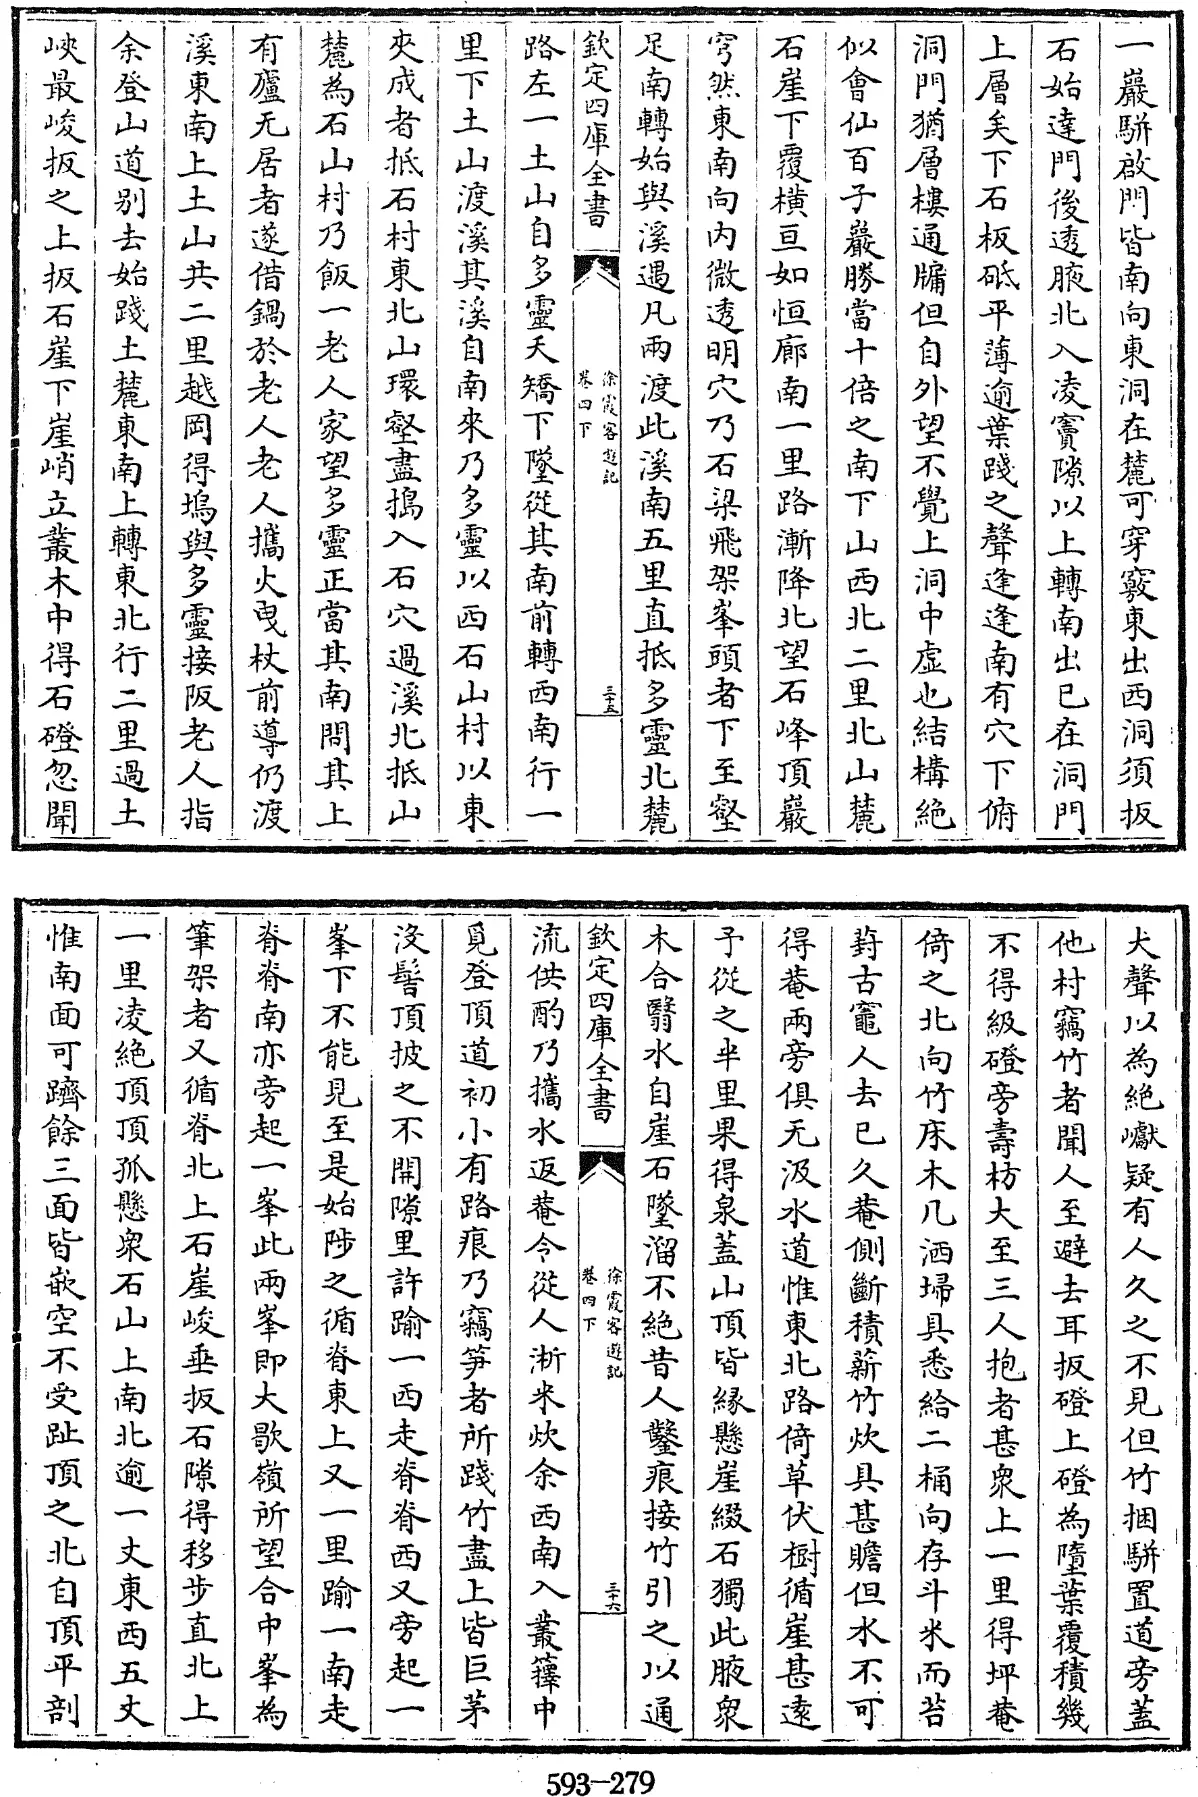 一巖駢啟門皆南向東洞在麓可穿竅東出西洞須扳
石始達門後透腋北入凌竇隙以上轉南出已在洞門
上層矣下石板砥平薄逾葉踐之聲逢逢南有穴下俯
洞門猶層樓通牖但自外望不覺上洞中虛也結構絕
似會仙百子巖勝當十倍之南下山西北二里北山麓
石崖下覆橫亘如恒廊南一里路漸降北望石峰頂巖
穹然東南向内微透明穴乃石梁飛架峯頭者下至壑
足南轉始與溪遇凡兩渡此溪南五里直抵多靈北麓
欽定四庫全書
徐霞客遊記
卷四下
三十五
路左一土山自多靈夭矯下墜從其南前轉西南行一
里下土山渡溪其溪自南來乃多靈以西石山村以東
夾成者抵石村東北山環壑盡搗入石穴過溪北抵山
麓為石山村乃飯一老人家望多靈正當其南問其上
有廬无居者遂借鍋於老人老人攜火曳杖前導仍渡
溪東南上土山共二里越岡得塢與多靈接阪老人指
余登山道别去始踐土麓東南上轉東北行二里過土
峽最峻扳之上扳石崖下崖峭立叢木中得石磴忽聞
犬聲以為絶巘疑有人久之不見但竹捆駢置道旁蓋
他村竊竹者聞人至避去耳扳磴上磴為墮葉覆積幾
不得級磴旁壽枋大至三人抱者甚衆上一里得坪菴
倚之北向竹床木几洒埽具悉給二桶向存斗米而苔
葑古竈人去已久菴側斷積薪竹炊具甚贍但水不可
得菴兩旁俱无汲水道惟東北路倚草伏樹循崖甚遠
予從之半里果得泉蓋山頂皆緣懸崖綴石獨此腋衆
木合翳水自崖石墜溜不絕昔人鑿痕接竹引之以通
欽定四庫全書
徐霞客遊記
卷四下
三十六
流供酌乃攜水返菴令從人淅米炊余西南入叢籜中
覓登頂道初小有路痕乃竊笋者所踐竹盡上皆巨茅
沒髻頂披之不開隙里許踰一西走脊脊西又旁起一
峯下不能見至是始陟之循脊東上又一里踰一南走
脊脊南亦旁起一峯此兩峯即大歇嶺所望合中峯為
筆架者又循脊北上石崖峻垂扳石隙得移步直北上
一里凌絶頂頂孤懸衆石山上南北逾一丈東西五丈
惟南面可躋餘三面皆嵌空不受趾頂之北自頂平剖
593-279